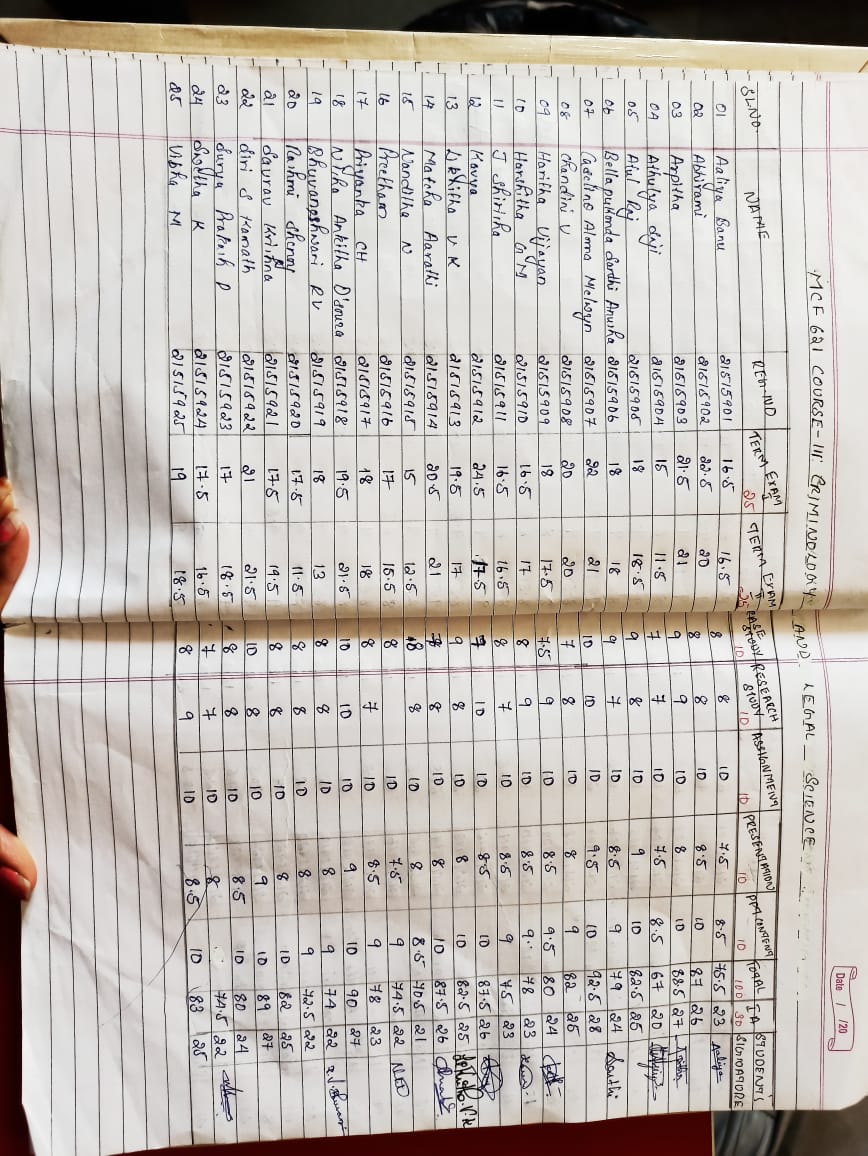 Date / /20
MCF 621 COURSE-III: CRIMINOLOGY AND LEGAL SCIENCE
SL.NO. NAME REG.NO TERM EXAM I 25 TERM EXAM II 25 CASE STUDY 10 RESEARCH STUDY 10 ASSIGNMENT 10 PRESENTATION 10 PPT CONTENT 10 TOTAL 100 IA 30 STUDENT'S SIGNATURE
01 Aaliya Banu 21515901 16.5 16.5 8 8 10 7.5 8.5 75.5 23 Aaliya
02 Abhirami 21515902 22.5 20 8 8 10 8.5 10 87 26
03 Arpitha 21515903 21.5 21 9 9 10 8 10 88.5 27
04 Athulya Siji 21515904 15 11.5 7 7 10 7.5 8.5 67 20
05 Atul Raj 21515905 18 18.5 9 8 10 9 10 82.5 25
06 Bellapukonda Santhi Anusha 21515906 18 18 9 7 10 8.5 9 79 24 Santhi
07 Caroline Aloma Melwyn 21515907 22 21 10 10 10 9.5 10 92.5 28
08 Chandini V 21515908 20 20 7 8 10 8 9 82 25
09 Haritha Vijayan 21515909 18 17.5 7.5 9 10 8.5 9.5 80 24
10 Harshitha G M 21515910 16.5 17 8 9 10 8.5 9 78 23
11 J Shirisha 21515911 16.5 16.5 8 7 10 8.5 9 75 23
12 Kavya 21515912 24.5 17.5 7 10 10 8.5 10 87.5 26
13 Likhitha V K 21515913 19.5 17 9 8 10 8 10 82.5 25 Likhitha.V.K
14 Matcha Aarathi 21515914 20.5 21 8 10 8 10 87.5 26
15 Nanditha N 21515915 15 12.5 8 8 10 8 8.5 70.5 21
16 Preetham 21515916 17 15.5 8 10 7.5 9 74.5 22
17 Priyanka CH 21515917 18 18 8 7 10 8.5 9 78 23
18 Nisha Ankitha D'souza 21515918 19.5 21.5 10 10 10 9 10 90 27
19 Bhuvaneshwari R V 21515919 18 13 8 8 10 8 9 74 22
20 Rashmi Shenoy 21515920 17.5 11.5 8 8 10 8 9 72.5 22
21 Saurav Krishna 21515921 17.5 19.5 8 8 10 8 10 82 25
22 Siri S Kamath 21515922 21 21.5 10 8 10 9 10 89 27
23 Surya Prakash D 21515923 17 18.5 8 8 10 8.5 10 80 24
24 Swetha K 21515924 17.5 16.5 7 7 10 8 74.5 22
25 Vibha M 21515925 19 18.5 8 9 10 8.5 10 83 25